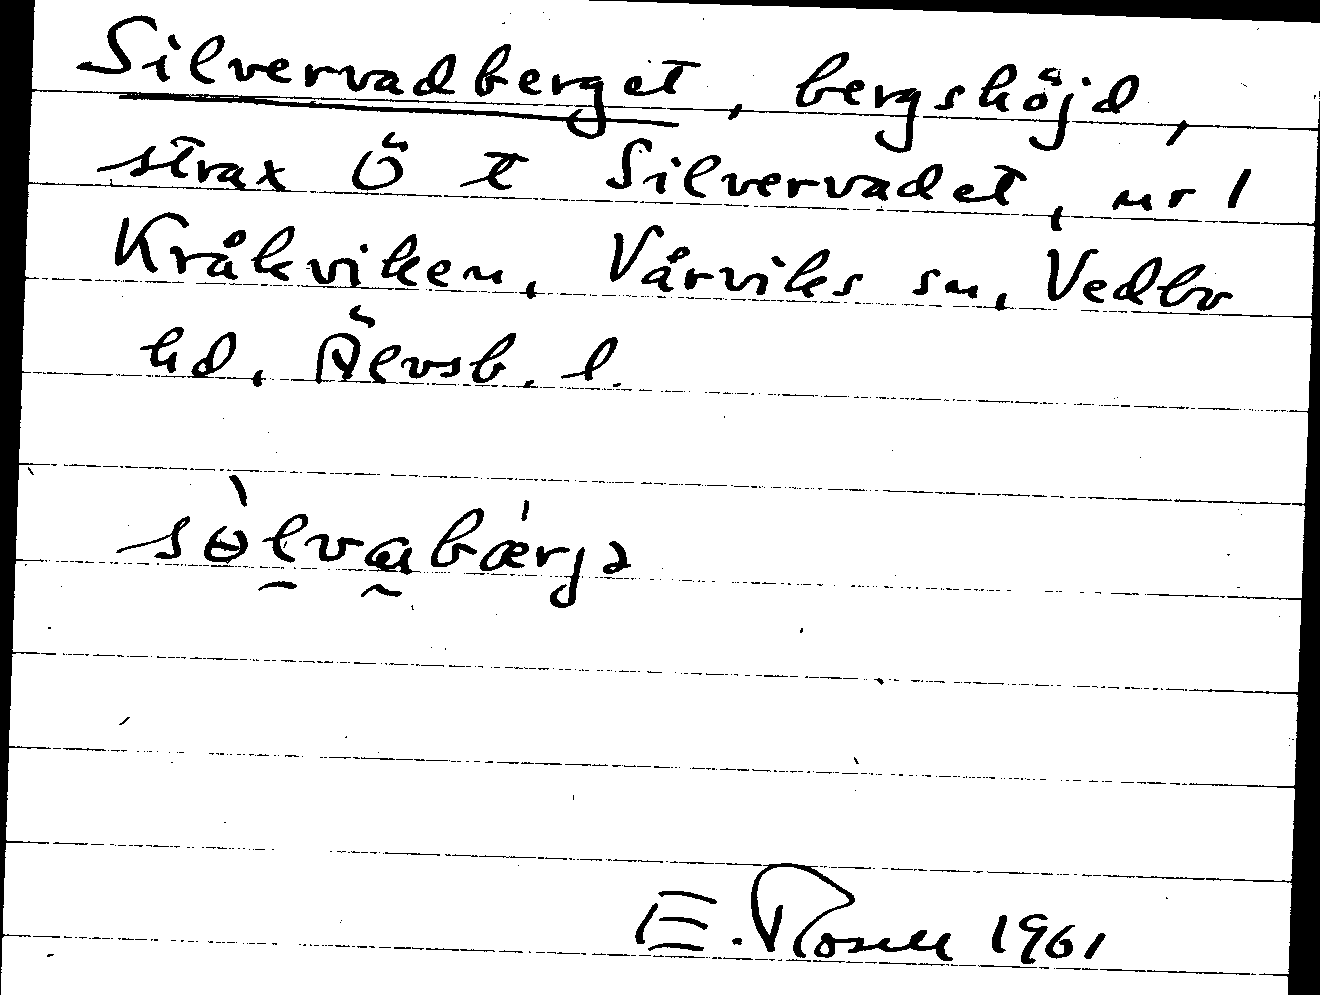 Silvervadberget, bergshöjd,
strax Ö t Silvervadet, nr 1
Kråkviken, Vårviks sn, Vedbo
hd, Älvsb. l.
sɵ̀l̠va̰bǽrjə
E. Rosell 1961